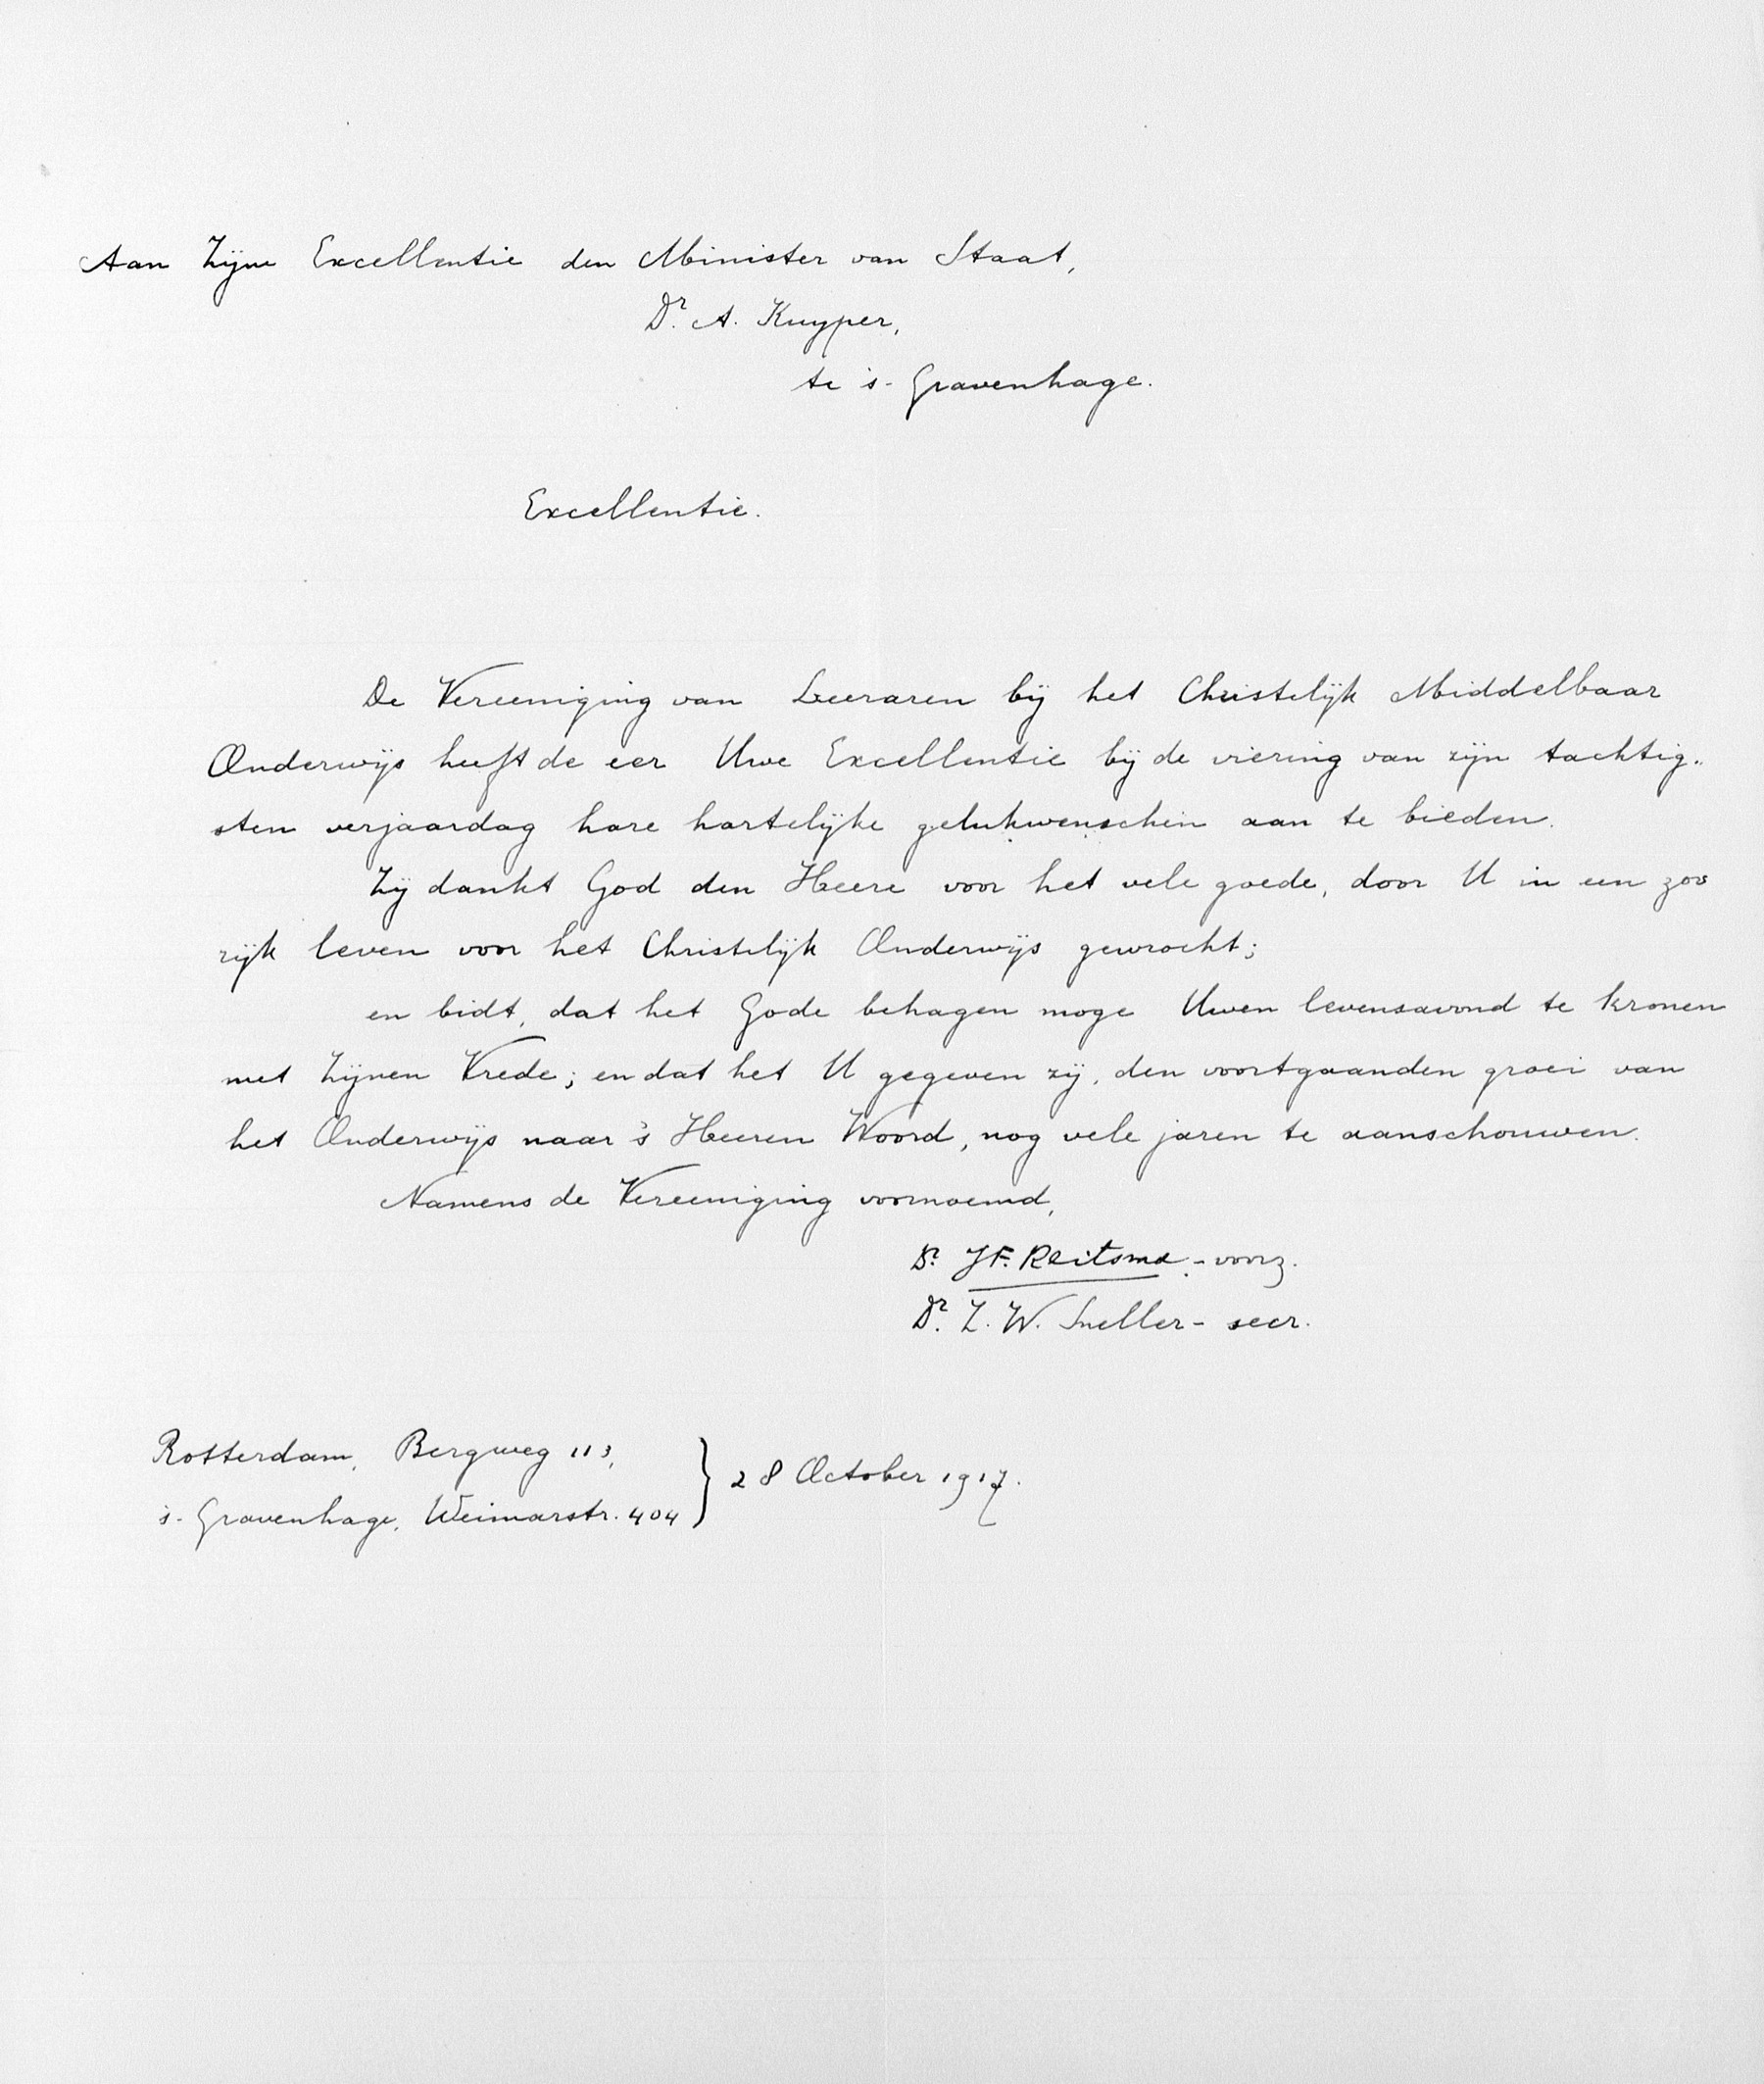 Aan Zijne Excellentie den Minister van Staat,
Dr. A. Kuyper,
te 's-Gravenhage.
Excellentie.
De Vereeniging van Leeraren bij het Christelijk Middelbaar
Onderwijs heeft de eer Uwe Excellentie bij de viering van zijn tachtig-
sten verjaardag hare hartelijke gelukwenschen aan te bieden.
Zij dankt God den Heere voor het vele goede, door U in een zoo
rijk leven voor het Christelijk Onderwijs gewrocht;
en bidt, dat het Gode behagen moge Uwen levensavond te kronen
met Zijnen Vrede; en dat het U gegeven zij, den voortgaanden groei van
het Onderwijs naar 's Heeren Woord, nog vele jaren te aanschouwen.
Namens de Vereeniging voornoemd,
Dr. J F. Reitsma - voorz.
Dr. Z. W. Sneller - secr.
Rotterdam, Bergweg 113,
's-Gravenhage, Weimarstr. 404 } 28 October 1917.